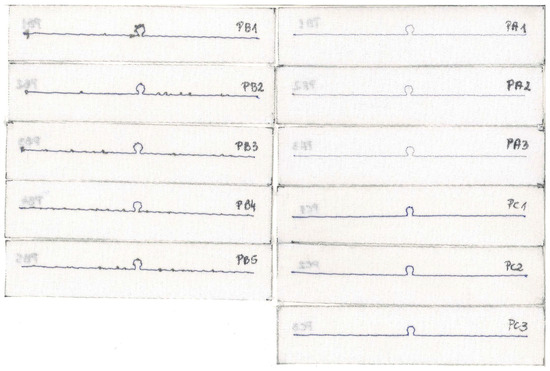 PB1
PB2
PB3
PB4
PB5
PA1
PA2
PA3
PC1
PC2
PC3